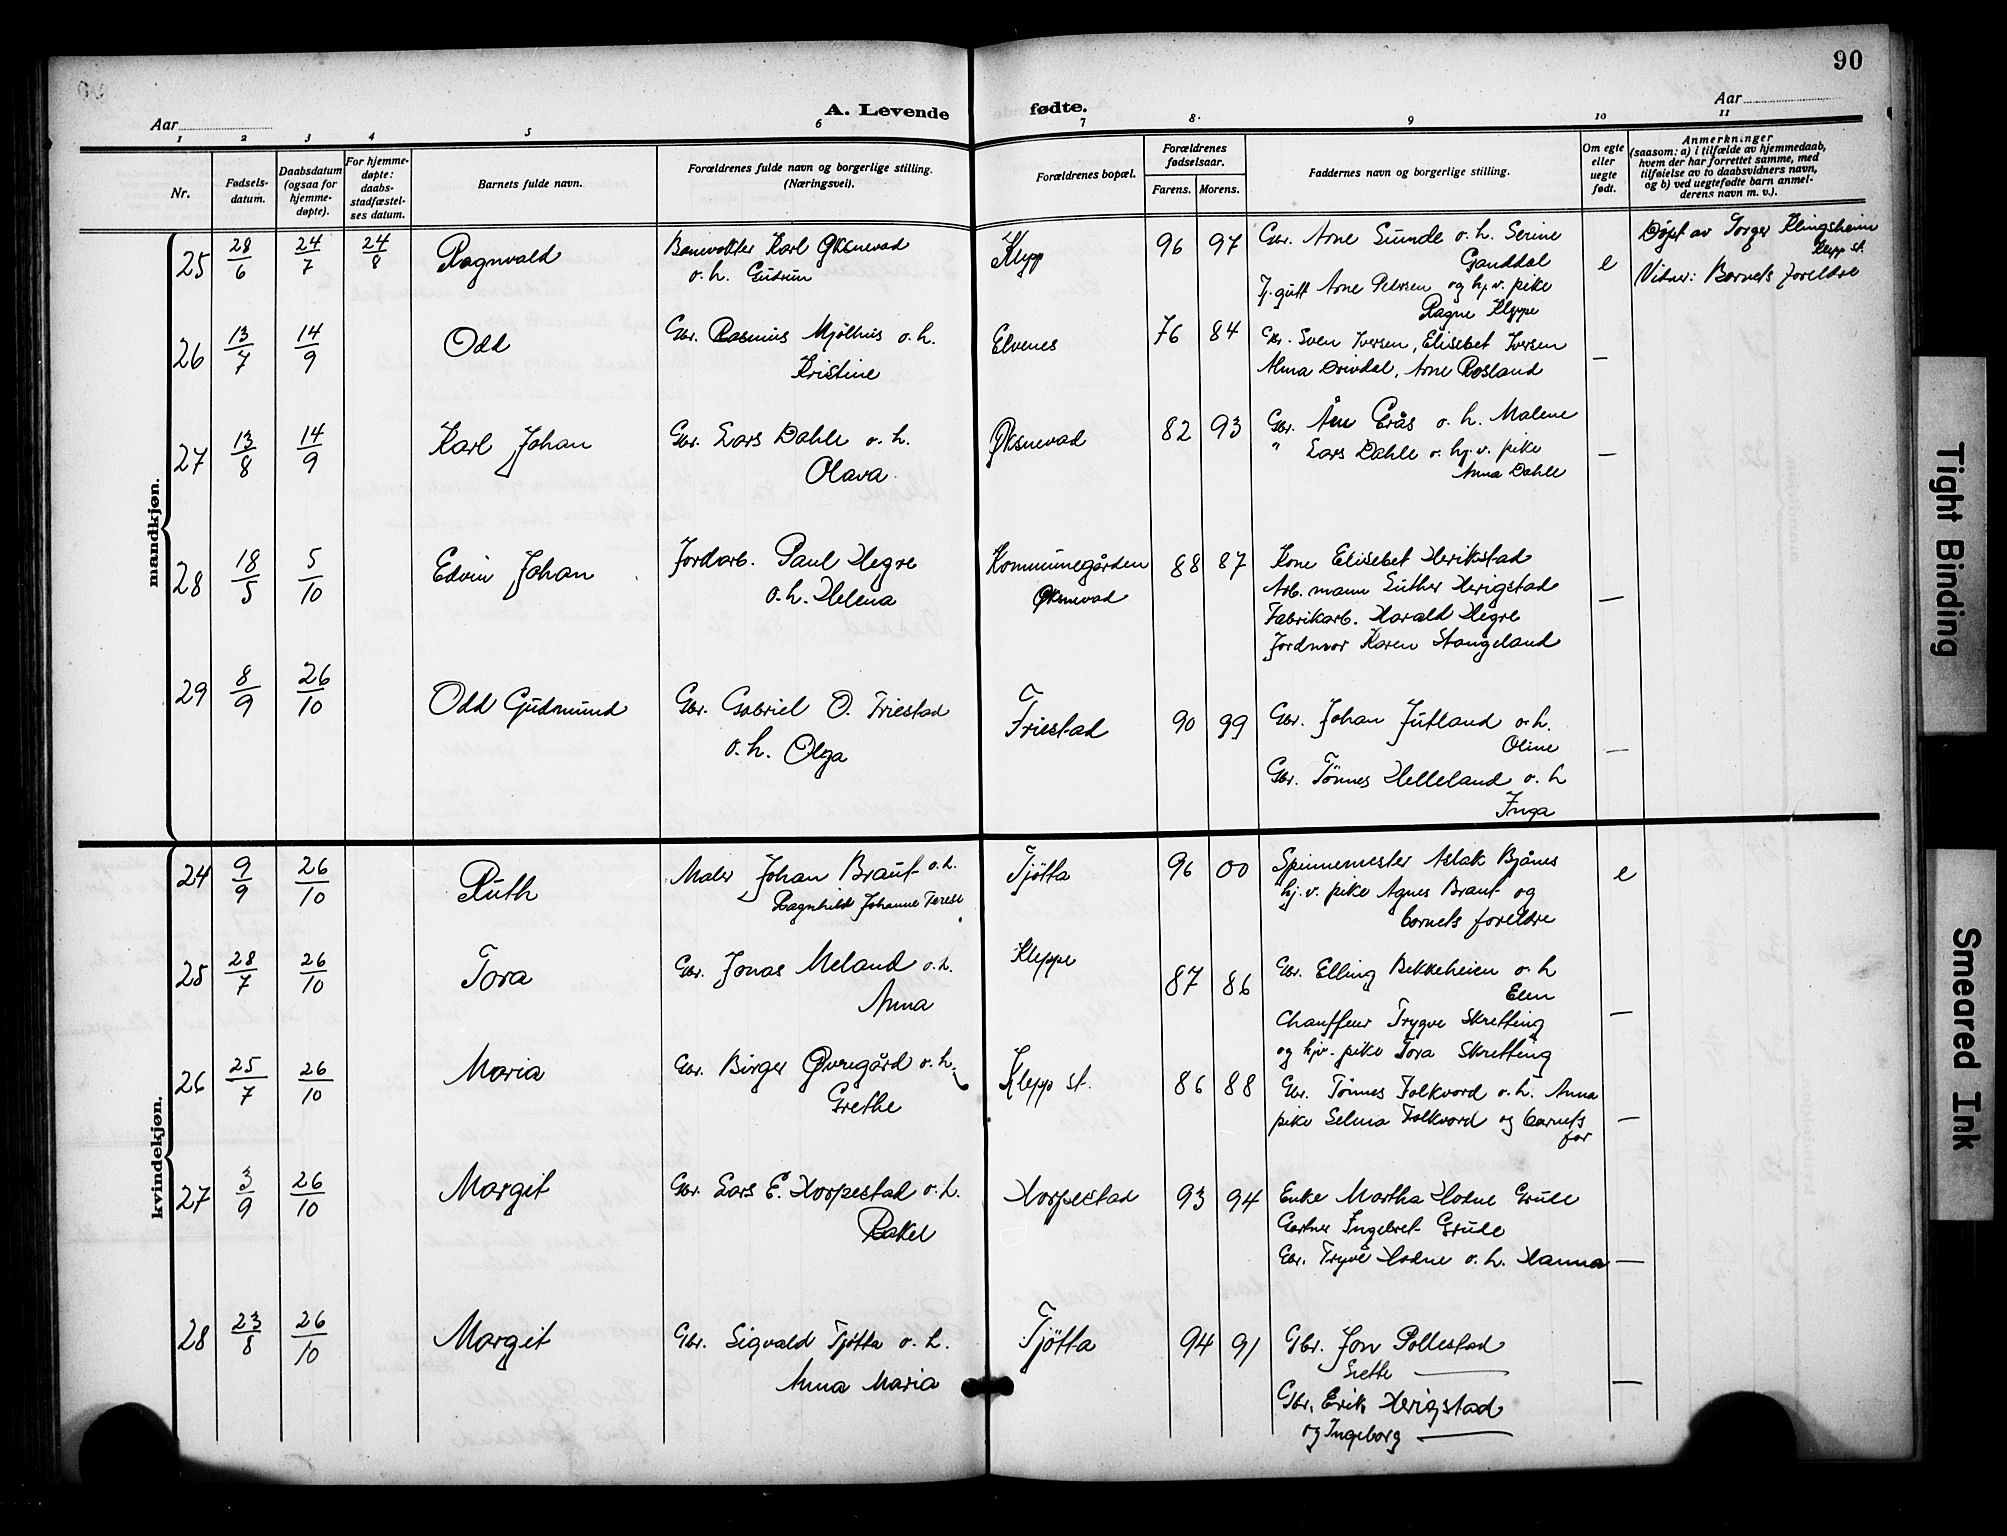 90
A. Levende fødte.
Aar
Aar
1 2 3 4 5 6 7 8. 9 10 11
Nr.
Fødsels-
datum.
Daabsdatum
(ogsaa for
hjemme-
døpte).
For hjemme-
døpte:
daabs-
stadfæstel-
ses datum.
Barnets fulde navn.
Forældrenes fulde navn og borgerlige stilling.
(Næringsvei).
Forældrenes bopæl.
Forældrenes
fødselsaar.
Farens. Morens.
Faddernes navn og borgerlige stilling.
Om egte
eller
uegte
født.
Anmerkninger
(saasom: a) i tilfælde av hjemmedaab,
hvem der har forrettet samme, med
tilføielse av to daabsvidners navn,
og b) ved uegtefødte barn anmel-
derens navn m. v.).
mandkjøn.
25 28/6 24/7 24/8 Ragnvald
Banevokter Karl Øksnevad
o. h. Gudrun
Klepp
96 97
Gbr. Arne Sunde o. h. Serine
Ganddal
Tj. gutt Arne Pedersen og hj. v. pike
Ragna Kleppe
e
Døpt av Torger Klingsheim
Klepp st.
Vidner: Barnets foreldre
26 13/7 14/9 Odd
Gbr. Rasmus Mjølhus o. h.
Kristine
Elvenes
76 84
Gbr. Sven Iversen, Elisebet Iversen
Alma Orivdal, Arne Rosland
—
27 13/8 14/9 Karl Johan
Gbr. Lars Dahle o. h.
Olava
Øksnevad
82 93
Gbr. Åne Erås o. h. Malene
" Lars Dahle o. hj. v. pike
Anna Dahle
—
28 18/5 5/10 Edvin Johan
Jordarb. Paul Hegre
o. h. Helena
Kommunegården
Øksnevad
88 87
Kone Elisebet Herikstad
Arb. mann Luther Herigstad
Fabrikarb. Harald Hegre
Jordmor Karen Stangeland
—
29 8/9 26/10 Odd Gudmund
Gbr. Gabriel O. Friestad
o. h. Olga
Friestad
90 99
Gbr. Johan Jutland o. h.
Oline
Gbr. Tønnes Helleland o. h
Inga
—
kvindekjøn.
24 9/9 26/10 Ruth
Maler Johan Braut o. h.
Ragnhild Johanne Terese
Tjøtta
96 00
Spinnemester Aslak Bjånes
hj. v. pike Agnes Braut og
barnets foreldre
e
25 28/7 26/10 Tora
Gbr. Jonas Meland o. h.
Anna
Kleppe
87 86
Gbr. Elling Bekkeheien o. h
Elen
Chauffeur Trygve Skretting
og hjv. pike Tora Skretting
—
26 25/7 26/10 Maria
Gbr. Birger Øvregård o. h.
Grethe
Klepp st.
86 88
Gbr. Tønnes Folkvord o. h. Anna
pike Selma Folkvord og barnets
far
—
27 3/9 26/10 Margit
Gbr. Lars E. Horpestad o. h.
Rakel
Horpestad
93 94
Enke Martha Hodne Grude
Gartner Ingebret Grude
Gbr. Tryve Hodne o. h. Hanna
—
28 23/8 26/10 Margit
Gbr. Sigvald Tjøtta o. h.
Anna Maria
Tjøtta
94 91
Gbr. Jon Pollestad
Grethe —
Gbr. Erik Herigstad
og Ingeborg —
—
Tight Binding
Smeared Ink